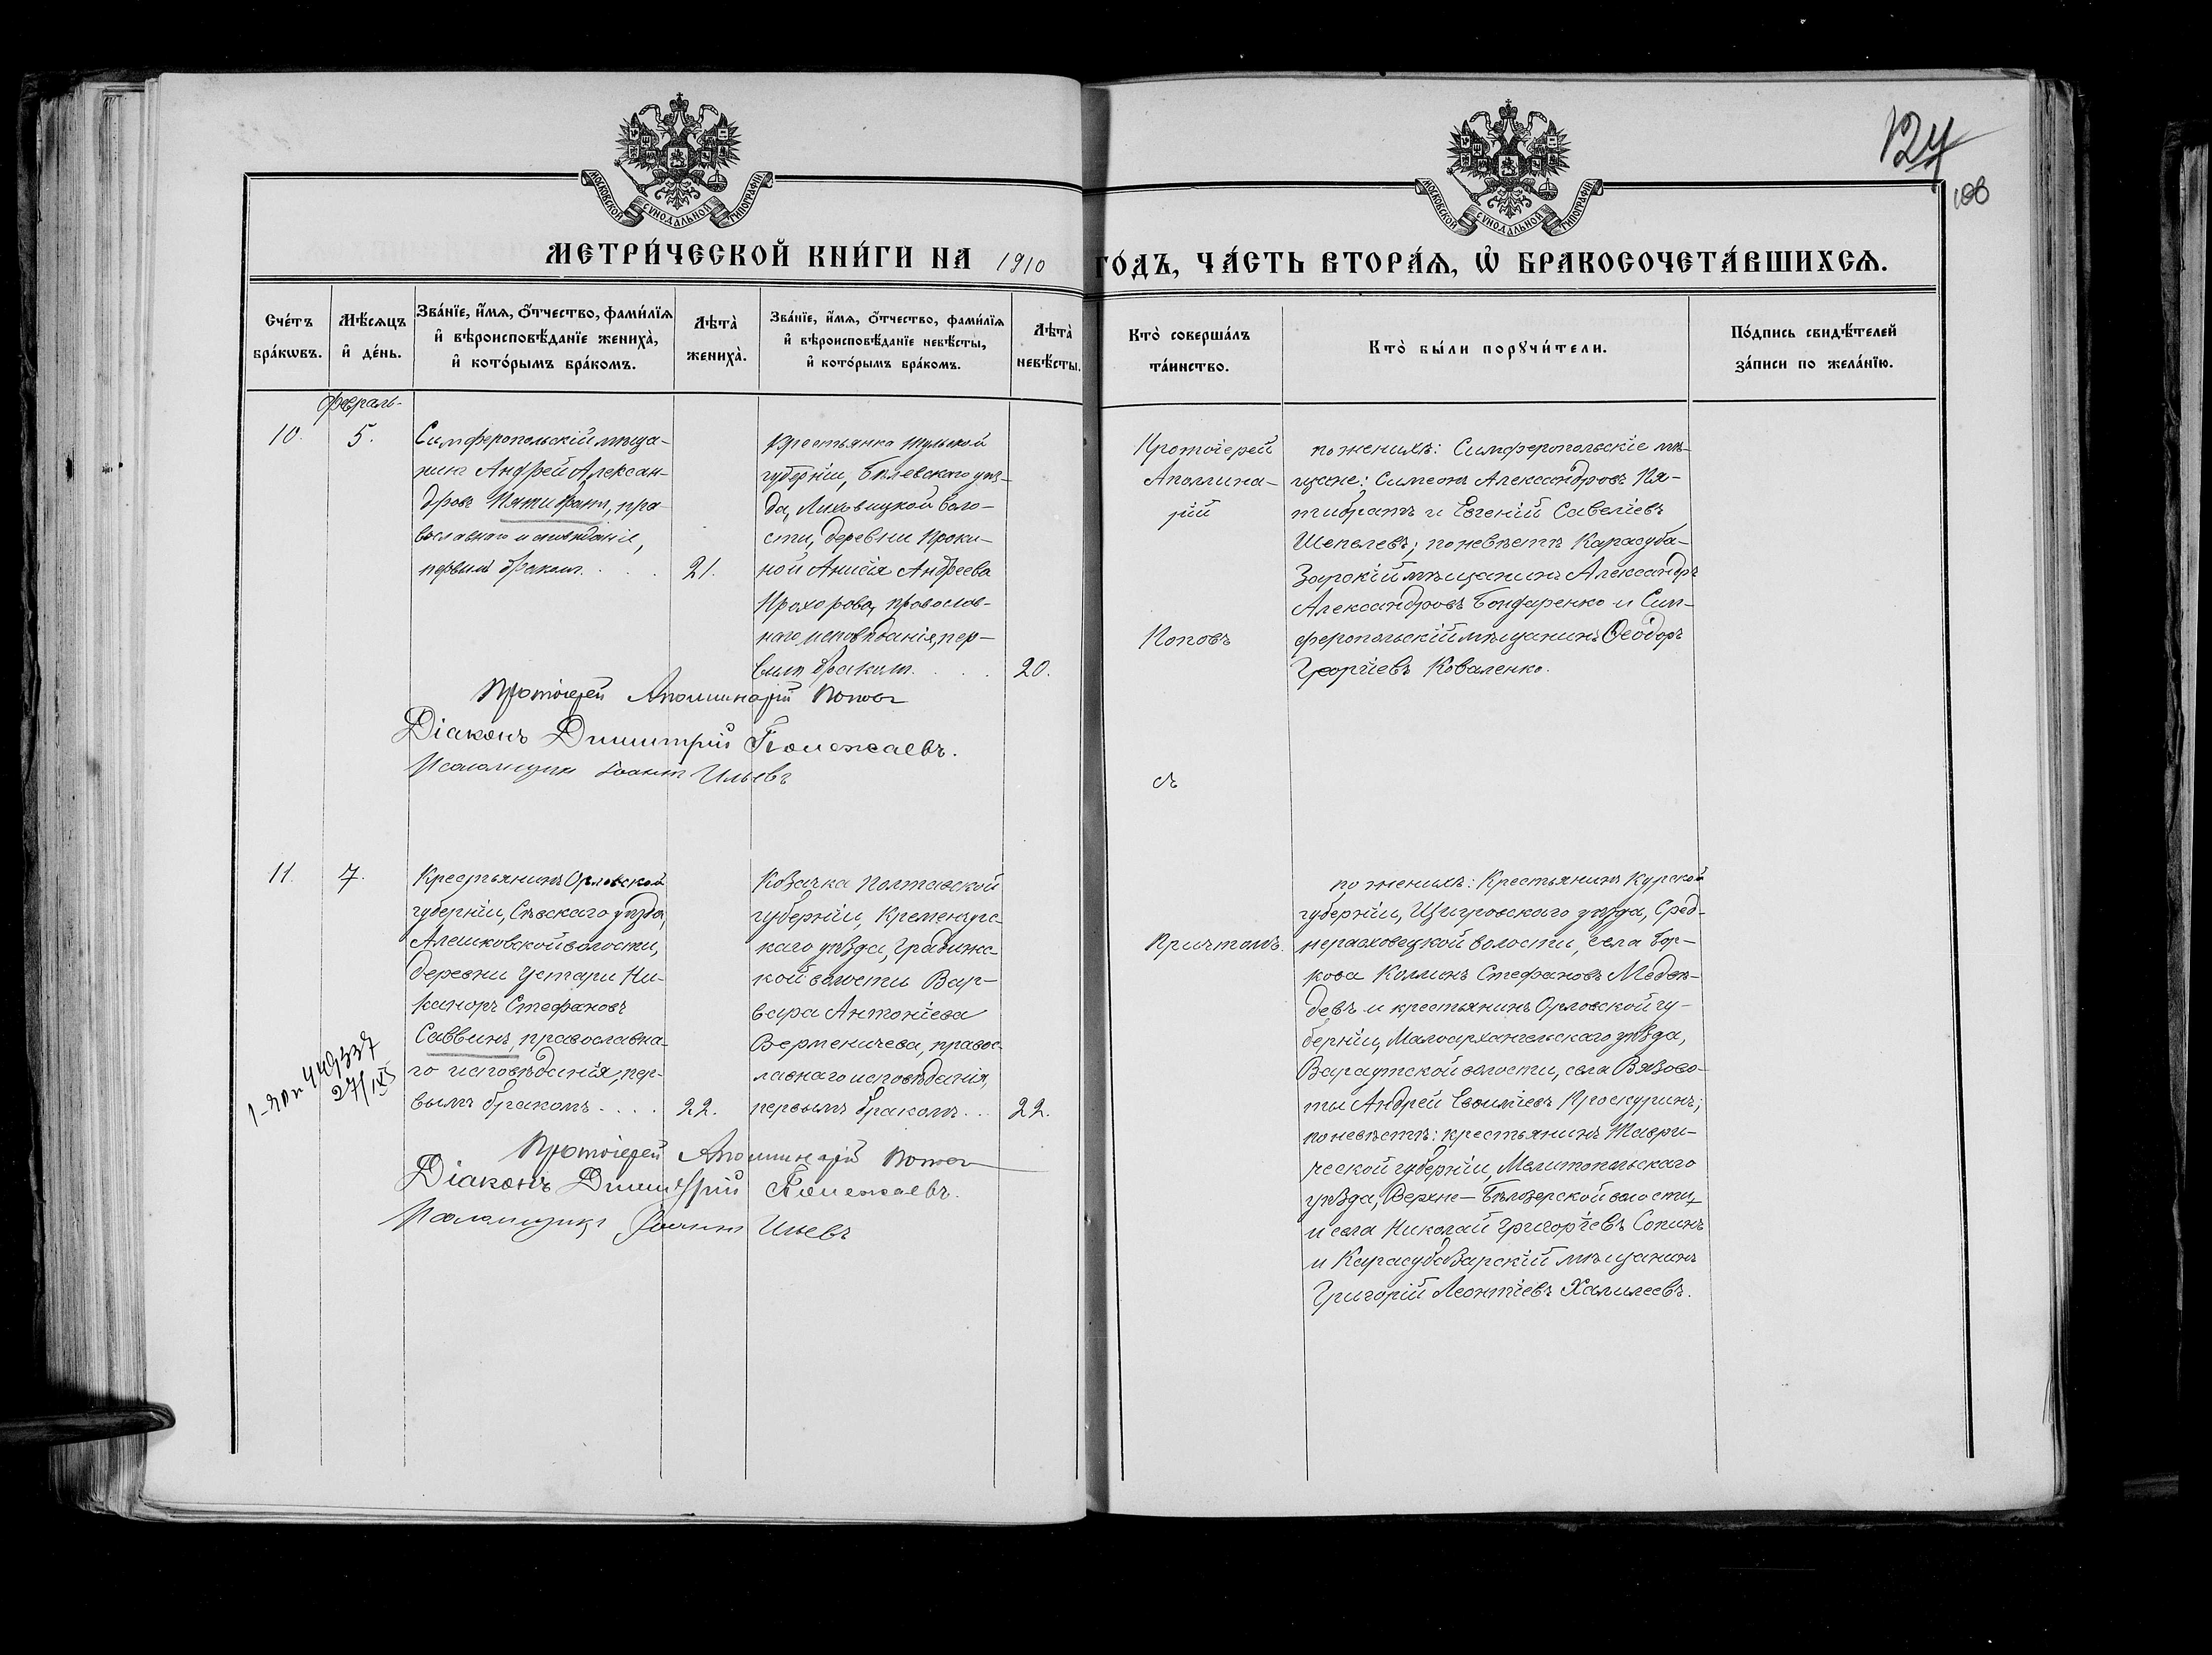 124
108
МОСКОВСКОЙ СѴНОДАЛЬНОЙ ТИПОГРАФІИ
МОСКОВСКОЙ СѴНОДАЛЬНОЙ ТИПОГРАФІИ
МЕТРИ́ЧЕСКОЙ КНИ́ГИ НА 1910 ГО́ДЪ, ЧА́СТЬ ВТОРА́Ѧ, Ѡ҆ БРАКОСОЧЕТА́ВШИХСѦ.
Счétъ
бра́кѡвъ.
Мѣ́сѧцъ
и҆ де́нь.
Зва́нїе, и҆́мѧ, ѻ҆́тчество, фами́лїѧ
и҆ вѣроисповѣ́данїе жениха̀,
и҆ кото́рымъ бра́комъ.
Лѣта̀
жениха̀.
Зва́нїе, и҆́мѧ, ѻ҆́тчество, фами́лїѧ
и҆ вѣроисповѣ́данїе невѣ́сты,
и҆ кото́рымъ бра́комъ.
Лѣта̀
невѣ́сты.
Кто̀ соверша́лъ
та́инство.
Кто̀ бы́ли порꙋчи́тели.
По́дпись свидѣ́телей
за́писи по жела́нїю.
Февраль
10.
5.
Симферопольскій мѣща-
нинъ Андрей Алексан-
дровъ Пятибратъ, пра-
вославнаго исповѣданія,
первымъ бракомъ. . .
21.
Крестьянка Тульской
губерніи, Бѣлевскаго уѣз-
да, Лиховицкой воло-
сти, деревни Проки-
ной Анисія Андреева
Прохорова, православ-
наго исповѣданія, пер-
вымъ бракомъ. . .
20.
Протоіерей
Аполлина-
рій
Поповъ
съ
Причтомъ.
по женихѣ: Симферопольскіе мѣ-
щане: Симеонъ Александровъ Пя-
тибратъ и Евгеній Савеліевъ
Шепелевъ; по невѣстѣ Карасуба-
зарскій мѣщанинъ Александръ
Александровъ Бондаренко и Сим-
феропольскій мѣщанинъ Ѳеодоръ
Георгіевъ Коваленко.
Протоіерей Аполлинарій Поповъ
Діаконъ Димитрій Полежаевъ.
Псаломщикъ Іоаннъ Ильевъ
11.
7.
Крестьянинъ Орловской
губерніи, Сѣвскаго уѣзда,
Алешковской волости,
деревни Устари Ни-
каноръ Стефановъ
Саввинъ, православна-
го исповѣданія, пер-
вымъ бракомъ. . . .
22.
Козачка Полтавской
губерніи, Кременчуг-
скаго уѣзда, Градижс-
кой волости Вар-
вара Антоніева
Верменичева, правос-
лавнаго исповѣданія,
первымъ бракомъ. . .
22.
по женихѣ: Крестьянинъ Курской
губерніи, Щигровскаго уѣзда, Сред-
нераховецкой волости, села Бор-
кова Коллинъ Стефановъ Медвѣ-
девъ и крестьянинъ Орловской гу-
берніи, Малоархангельскаго уѣзда,
Вараутской волости, села Вязово-
ты Андрей Евѳиміевъ Проскуринъ;
по невѣстѣ: крестьянинъ Таври-
ческой губерніи, Мелитопольскаго
уѣзда, Верхне-Бѣлозерской волости
и села Николай Григоріевъ Сопинъ
и Карасубазарскій мѣщанинъ
Григорій Леонтіевъ Халилеевъ.
449337
27/IX
Протоіерей Аполлинарій Поповъ
Діаконъ Димитрій Полежаевъ.
Псаломщикъ Іоаннъ Ильевъ